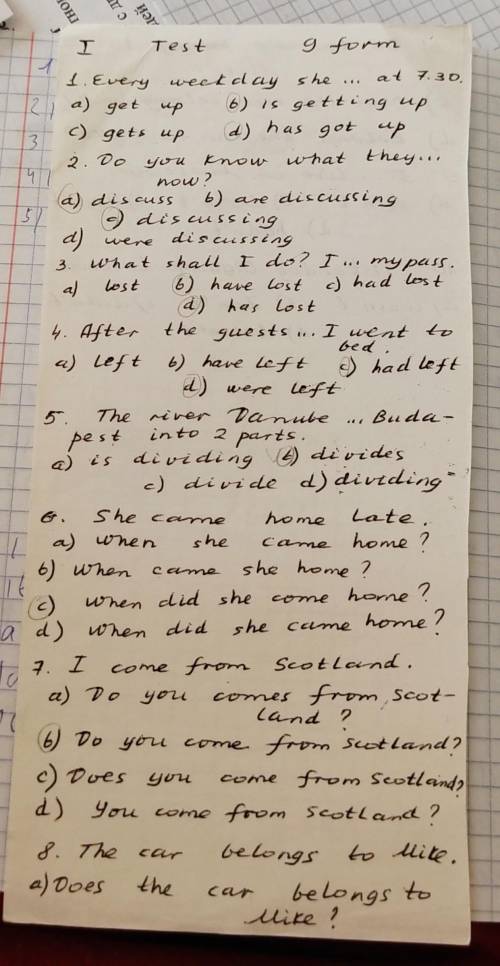 I Test 9 form
1. Every weekday she ... at 7.30.
a) get up b) is getting up
c) gets up d) has got up
2. Do you know what they...
now?
a) discuss b) are discussing
c) discussing
d) were discussing
3. What shall I do? I ... my pass.
a) lost b) have lost c) had lost
d) has lost
4. After the guests ... I went to
bed.
a) left b) have left c) had left
d) were left
5. The river Danube ... Buda-
pest into 2 parts.
a) is dividing b) divides
c) divide d) dividing
6. She came home late.
a) when she came home?
b) When came she home?
c) When did she come home?
d) When did she came home?
7. I come from Scotland.
a) Do you comes from Scot-
land?
b) Do you come from Scotland?
c) Does you come from Scotland?
d) You come from Scotland?
8. The car belongs to Mike.
a) Does the car belongs to
Mike?